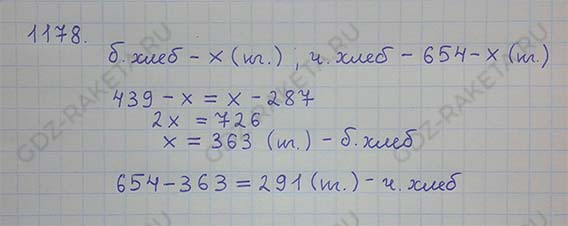 1178.
б. хлеб - x (кг.) ; ч. хлеб - 654 - x (кг.)
439 - x = x - 287
2x = 726
x = 363 (кг.) - б. хлеб
654 - 363 = 291 (кг.) - ч. хлеб
GDZ-RAKETA.RU
GDZ-RAKETA.RU
GDZ-RAKETA.RU